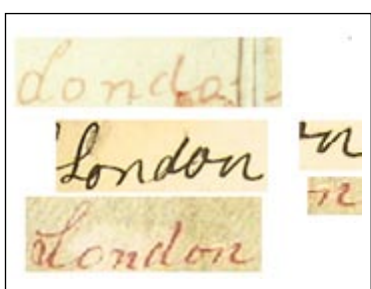 Londo
London n
London n